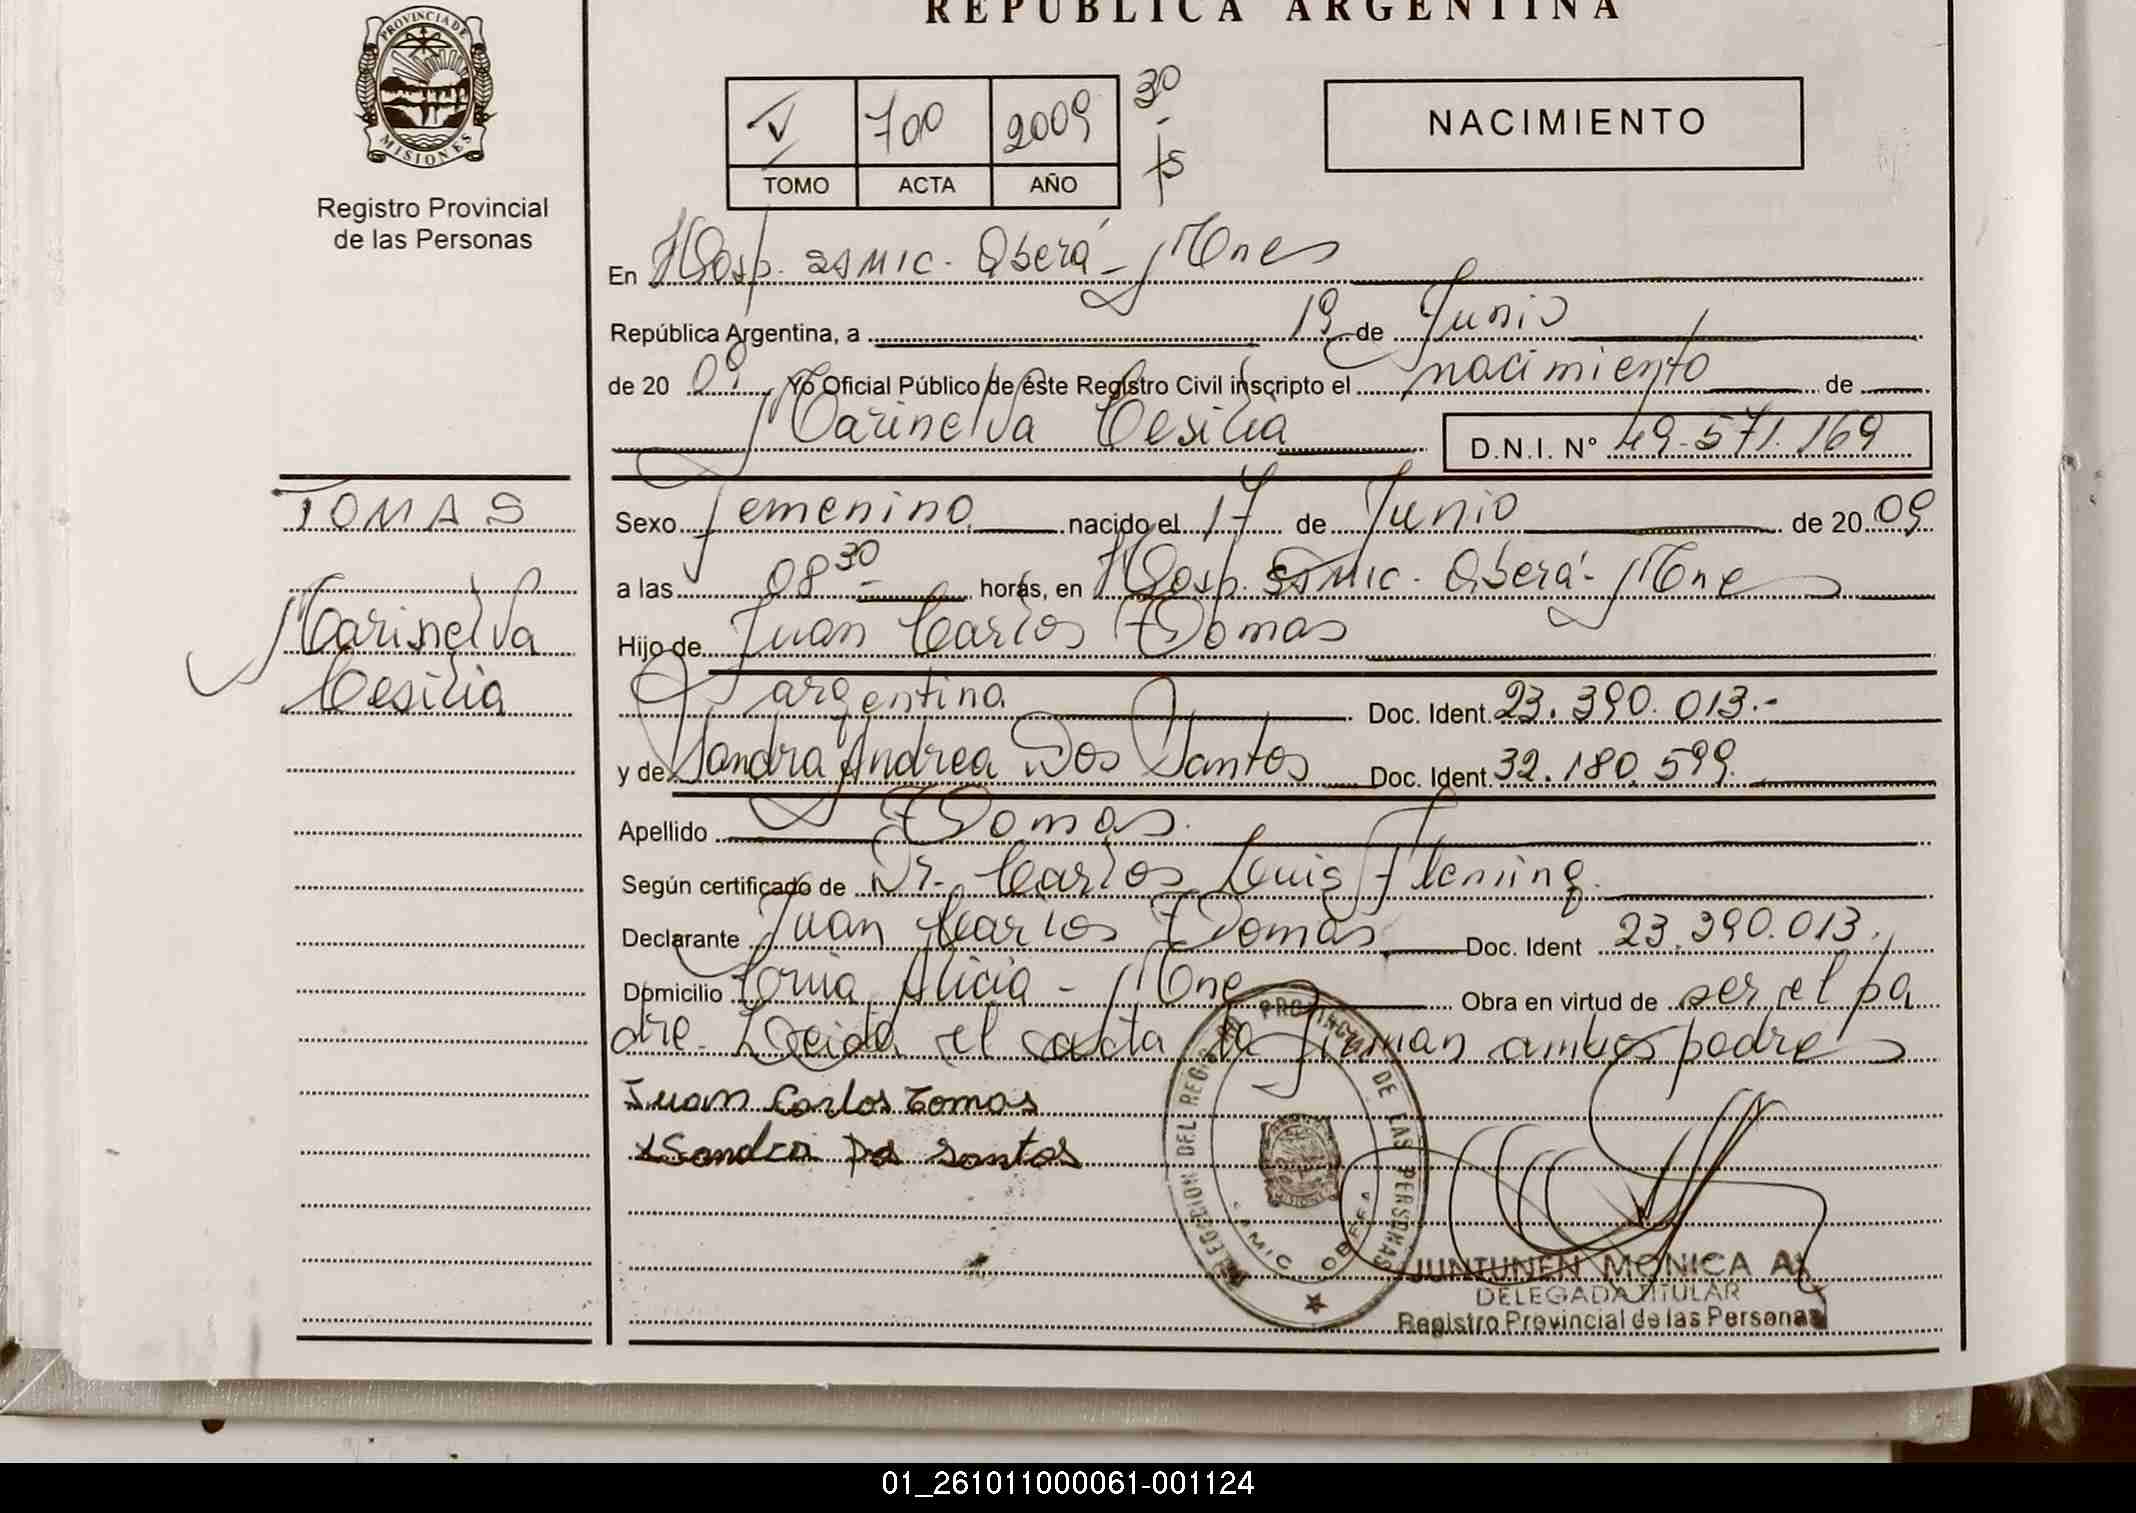 REPUBLICA ARGENTINA
PROVINCIA DE
MISIONES
Registro Provincial
de las Personas
V 700 2009
TOMO ACTA AÑO
30
15
NACIMIENTO
En Hosp. SAMIC. Oberá - Mnes
República Argentina, a 19 de Junio
de 20 09 Yo Oficial Público de este Registro Civil inscripto el nacimiento de
Marinelva Cesilia D.N.I. N° 49.571.169
TOMAS
Marinelva
Cesilia
Sexo femenino nacido el 17 de Junio de 20 09
a las 08 30 horas, en Hosp. SAMIC. Oberá - Mnes
Hijo de Juan Carlos Tomas
argentina Doc. Ident. 23.390.013.-
y de Sandra Andrea Dos Santos Doc. Ident. 32.180.599.
Apellido Tomas.
Según certificado de Dr. Carlos Luis Fleming.
Declarante Juan Carlos Tomas Doc. Ident 23.390.013.
Domicilio Alicia - Mnes Obra en virtud de ser el pa
dre. Leida el acta la firman ambos padres
Juan Carlos Tomas
Sandra Dos Santos
DELEGACION DEL REGISTRO PROVINCIAL DE LAS PERSONAS
SAMIC OBERA
JUNTUNEN MONICA A.
DELEGADA TITULAR
Registro Provincial de las Personas
01_261011000061-001124